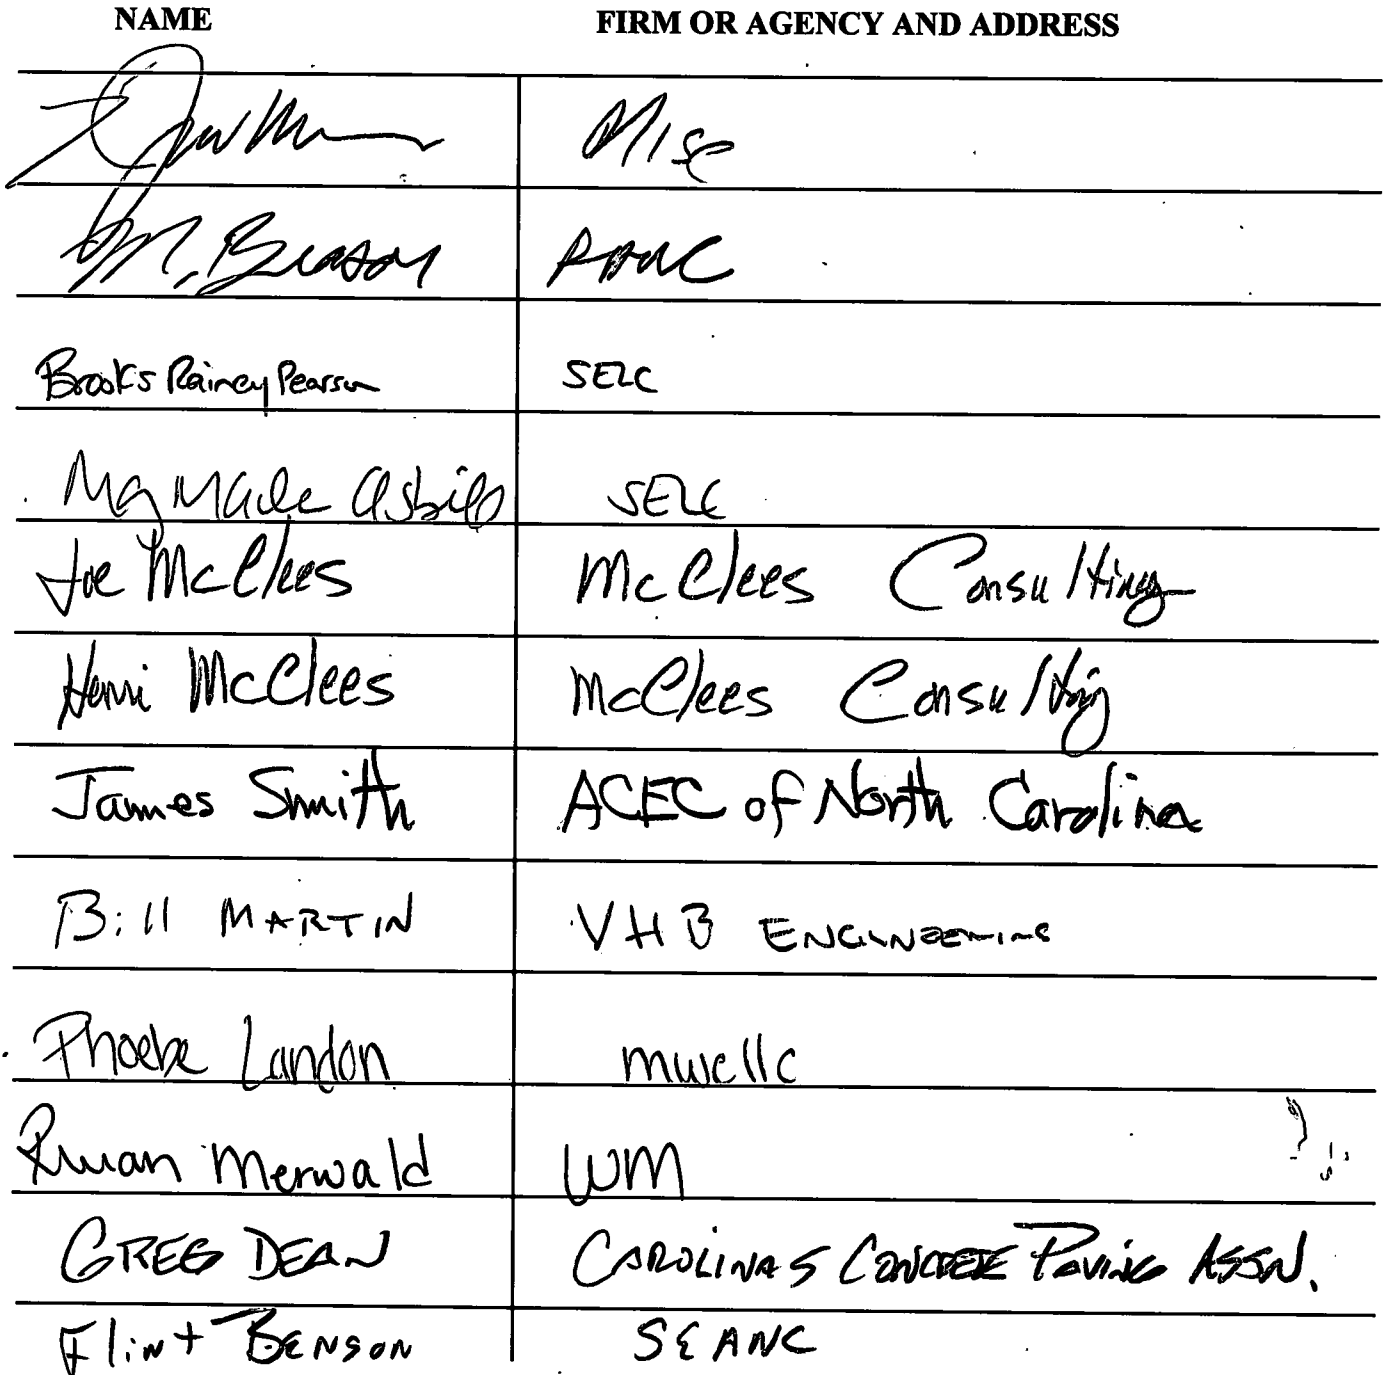 NAME FIRM OR AGENCY AND ADDRESS
M. Benson
Brooks Rainey Pearson SELC
SELC
Joe McClees McClees Consulting
Henri McClees McClees Consulting
James Smith ACEC of North Carolina
Bill MARTIN VHB ENGINEERING
Phoebe Landon mwcllc
Merwald WM
GREG DEAN CAROLINAS CONCRETE PAVING ASSN.
Flint BENSON SEANC